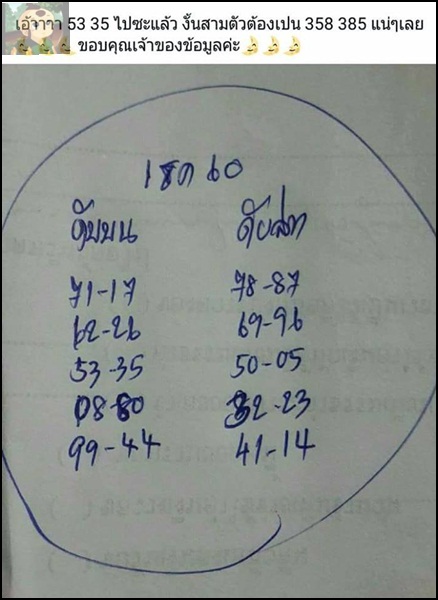 เอ้าาาา 53 35 ไปซะแล้ว งั้นสามตัวต้องเปน 358 385 แน่ๆเลย
ขอบคุณเจ้าของข้อมูลค่ะ
60
ดับบน ดับล่าง
71-17 78-87
62-26 69-96
53-35 50-05
08-80 32-23
99-44 41-14